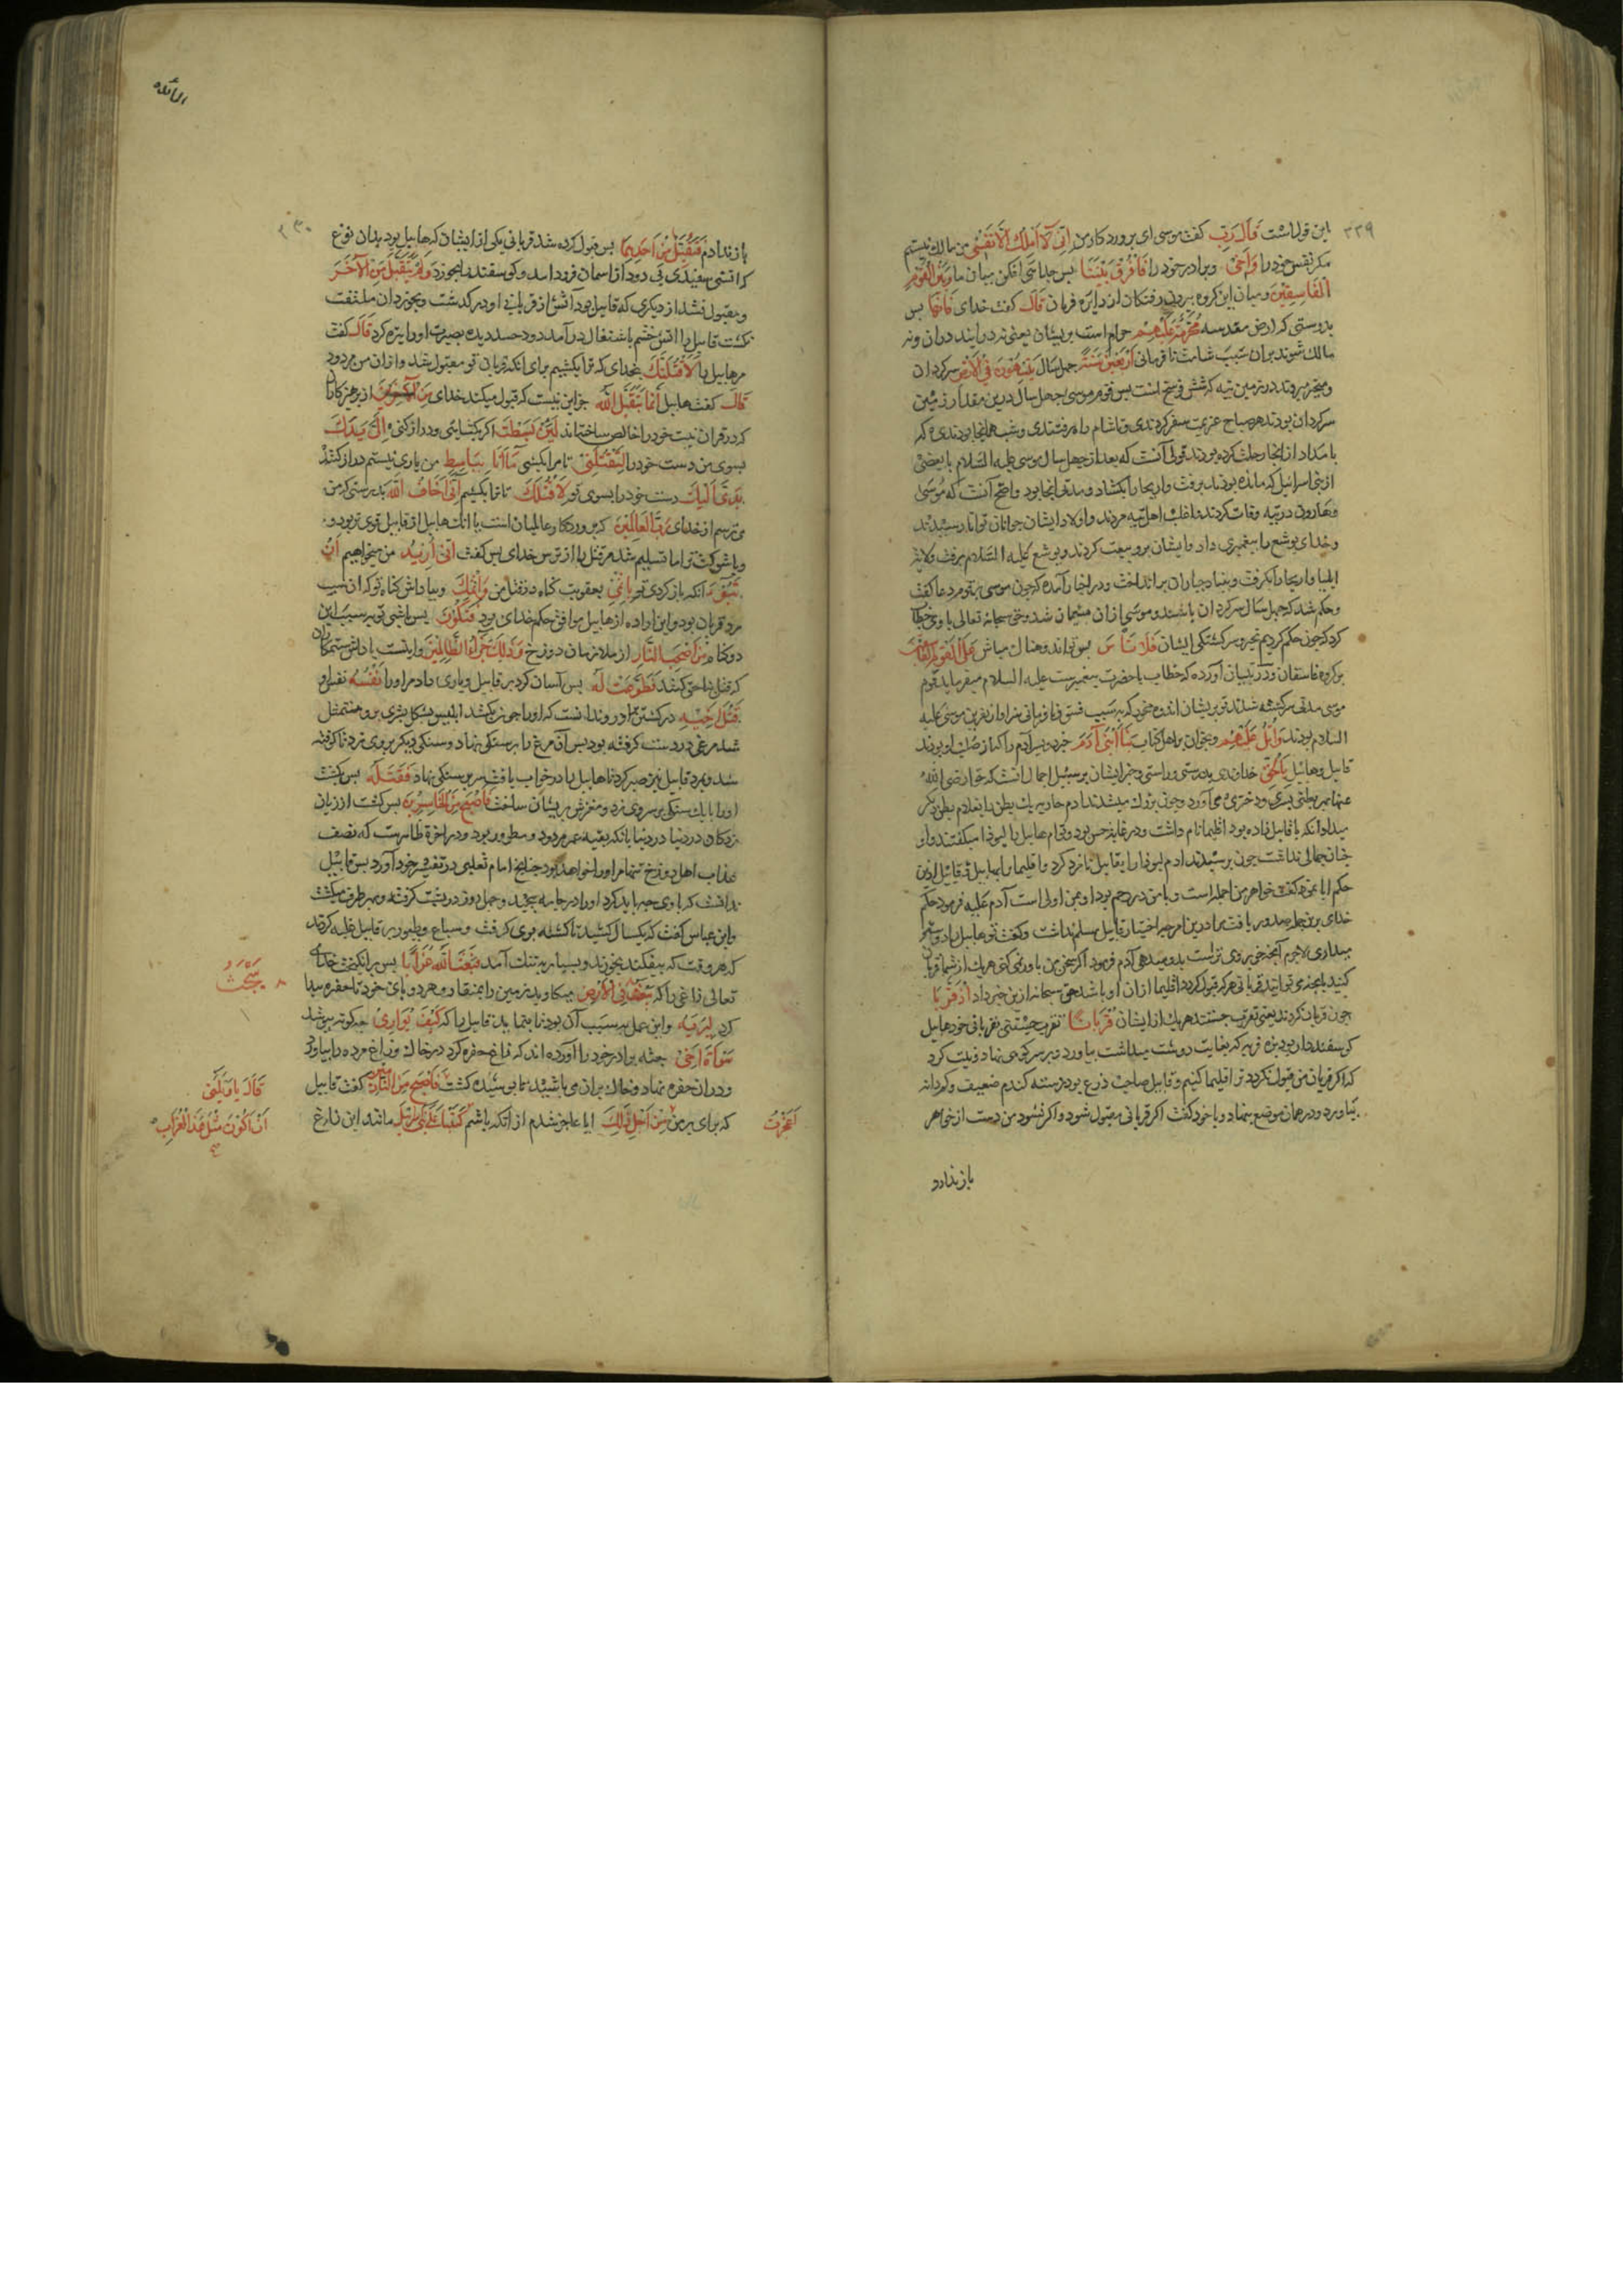 ٣٣٩
این قول است قَالَ رَبِّ کفت موسی ای پروردکار من اِنّی لَا اَمْلِکُ اِلَّا نَفْسِی من مالک نیستم
مکر نفس خود را وَاَخِی و برادر خود را فَافْرُقْ بَیْنَنَا بس جدایی افکن میان ما وَبَیْنَ الْقَوْمِ
الْفَاسِقِیْنَ و میان این کروه بیرون رفتکان از دایره فرمان قَالَ کفت خدای فَاِنَّهَا بس
بدرستی که ارض مقدسه مُحَرَّمَةٌ عَلَیْهِمْ حرام است بریشان یعنی نه درایند دران و نه
مالک شوند بران بسبب شامت نافرمانی اَرْبَعِیْنَ سَنَةً جهل سال یَتِیْهُوْنَ فِی الْاَرْضِ سرکردان
و متحیر میروند در زمین تیه که شش فرسخ است بس قوم موسی جهل سال درین مقدار زمین
سرکردان بودند هر صباح عزیمت سفر کردندی و تا شام راه رفتندی و شب همانجا بودندی که
بامداد از انجا رحلت کرده بودند قولی آنست که بعد از جهل سال موسی علیه السلام با بعضی
از بنی اسرائیل که مانده بودند برفت و اریحا را بکشاد و مدتی انجا بود و اصح آنست که موسی
و هارون در تیه وفات کردند و اغلب اهل تیه مردند و اولاد ایشان جوانان توانا رسیدند
و خدای یوشع را پیغمبری داد و ایشان برو بیعت کردند و یوشع علیه السلام برفت و ولایت
ایلیا و اریحا را بکرفت و بنیاد جباران برانداخت و در اخبار آمده که جون موسی بر قوم دعا کفت
و حکم شد که جهل سال سرکردان باشند و موسی ازان پشیمان شد و حق سبحانه تعالی با وی خطاب
کرد که جون حکم کردیم بتحیر و سرکشتکی ایشان فَلَا تَأْسَ بس تو اندوهناک مباش عَلَی الْقَوْمِ الْفَاسِقِیْنَ
بر کروه فاسقان و در تبیان آورده که خطاب با حضرت پیغمبرست علیه السلام میفرماید قوم
موسی مدتی سرکشته شدند تو بریشان اندوه مخور که بسبب فسق و نافرمانی سزاوار نفرین موسی علیه
السلام بودند وَاتْلُ عَلَیْهِمْ و بخوان بر اهل کتاب نَبَأَ ابْنَیْ آدَمَ خبر دو پسر آدم را که از صلب او بودند
قابیل و هابیل بِالْحَقِّ خواندنی بدرستی و راستی و خبر ایشان بر سبیل اجمال انست که حوا رضی الله
عنها بهر بطنی پسری و دختری می آورد و جون بزرک میشدند آدم جاریه یک بطن را بغلام بطن دیکر
میداد آنکه با قابیل زاده بود اقلیما نام داشت و در غایت حسن بود و توام هابیل را لیوذا میکفتند و او
جنان جمالی نداشت جون برسیدند آدم لیوذا را بقابیل نامزد کرد و اقلیما را بهابیل قابیل ازین
حکم ابا نمود کفت خواهر من اجمل است و با من در رحم بود او بمن اولی است آدم علیه فرمود حکم
خدای برین جمله صدور یافت مرا درین امر جه اختیار قابیل مسلم نداشت و کفت تو هابیل را دوست
میداری لاجرم آنجه خوبروی تر است بدو میدهی آدم فرمود اکر سخن من باور نمی کنی هریک از شما قربان
کنید بانجه می توانید قربانی هرکه قبول کردد اقلیما ازان او باشد حق سبحانه ازین خبر داد اِذْ قَرَّبَا
جون قربان کردند یعنی تقرب جستند هریک از ایشان قُرْبَانًا تقرب جستنی بقربانی خود هابیل
کوسفنددار بود بره فربه که بغایت دوست میداشت بیاورد و بر سر کوهی نهاد و نیت کرد
که اکر قربان من قبول نکردد ترک اقلیما کنیم و قابیل صاحب ذرع بود دسته کندم ضعیف و کم دانه
بیاورد و در همان موضع بنهاد و با خود کفت اکر قربانی مقبول شود و اکر نشود من دست از خواهر
باز ندارد
المائده
٣٣٠
باز ندارم فَتُقُبِّلَ مِنْ اَحَدِهِمَا بس قبول کرده شد قربانی یکی از ایشان که هابیل بود بدان نوع
که اتشی سفیدی بی دود از اسمان فرود امد و کوسفند را بخورد وَلَمْ یُتَقَبَّلْ مِنَ الْآخَرِ
و مقبول نشد از دیکری که قابیل بود آتش از قربانی او درکذشت و بخوردان ملتفت
نکشت قابیل را اتش خشم باشتعال درآمد دود حسد دیده بصیرت او را تیره کرد قَالَ کفت
مر هابیل را لَاَقْتُلَنَّکَ بخدای که ترا بکشیم برای انکه قربان تو مقبول شد و ازان من مردود
قَالَ کفت هابیل اِنَّمَا یَتَقَبَّلُ اللّٰهُ جز این نیست که قبول میکند خدای مِنَ الْمُتَّقِیْنَ از پرهیزکاران
که در قربان نیت خود را خالص ساخته اند لَئِنْ بَسَطْتَ اکر بکشایی و دراز کنی اِلَیَّ یَدَکَ
بسوی من دست خود را لِتَقْتُلَنِی تا مرا بکشی مَا اَنَا بِبَاسِطٍ من باری نیستم دراز کننده
یَدِیَ اِلَیْکَ دست خود را بسوی تو لِاَقْتُلَکَ تا ترا بکشیم اِنِّی اَخَافُ اللّٰهَ بدرستی که من
می ترسم از خدای رَبَّ الْعَالَمِیْنَ که پروردکار عالمیان است با انک هابیل از قابیل قوی تر بود و
اِنِّی اُرِیْدُ من میخواهیم اَنْ
تَبُوْءَ انکه باز کردی تو بِاِثْمِی بعقوبت کناه در قتل من وَاِثْمِکَ و بپاداش کناه تو که ان سبب
رد قربان بود و این اراده از هابیل موافق حکم خدای بود فَتَکُوْنَ بس باشی تو بسبب این
دو کناه مِنْ اَصْحَابِ النَّارِ از ملازمان دوزخ وَذٰلِکَ جَزَاءُ الظَّالِمِیْنَ و اینست پاداش ستمکاران
که قتل بناحق کنند فَطَوَّعَتْ لَهٗ بس آسان کرد بر قابیل و یاری داد مر او را نَفْسُهٗ نفس او
قَتْلَ اَخِیْهِ در کشتن برادر و ندانست که او را جون بکشد ابلیس بشکل بشری برو متمثل
شد مرغی در دست کرفته بود بس آن مرغ را بر سنکی نهاد و سنکی دیکر بر وی زد تا کوفته
شد و بمرد قابیل نیز صبر کرد تا هابیل را در خواب یافت سر بر سنکی نهاد فَقَتَلَهٗ بس بکشت
او را بایک سنکی بر سر وی زد و مغزش پریشان ساخت فَاَصْبَحَ مِنَ الْخَاسِرِیْنَ بس کشت از زیان
زدکان در دنیا در دنیا بانکه بقیه عمر مردود و مطرود بود و در اخرة ظاهرست که نصف
عذاب اهل دوزخ تنها مر او را خواهد بود جنانجه امام ثعلبی در تفسیر خود آورد بس قابیل
ندانست که با وی جه باید کرد او را در جامه پیچید و جهل روز در پشت کرفته و بهر طرف میکشت
و ابن عباس کفت که یکسال کشید تا کشته بوی کرفت و سباع و طیور بر قابیل غلبه کردند
که هر وقت که بیفکند بخورند و بسیار بتنک آمد فَبَعَثَ اللّٰهُ غُرَابًا بس برانکیخت خدای
تعالی زاغی را که یَبْحَثُ فِی الْاَرْضِ میکاوید زمین را بمنقار و هر دو پای خود تا حفره پیدا
کرد لِیُرِیَهٗ و این عمل بسبب آن بود تا بنماید قابیل را که کَیْفَ یُوَارِی جه کونه بپوشد
سَوْأَةَ اَخِیْهِ جثه برادر خود را آورده اند که زاغ حفره کرد در خاک و زاغ مرده را بیاورد
و دران حفره نهاد و خاک بران می پاشید تا پوشیده کشت فَاَصْبَحَ مِنَ النَّادِمِیْنَ کفت قابیل
که برای بر من مِنْ اَجْلِ ذٰلِکَ ایا عاجز شدم از انکه باشم مانند این زارغ
یَبْحَثُ
قَالَ یَا وَیْلَتٰی
اَنْ اَکُوْنَ مِثْلَ هٰذَا الْغُرَابِ
اَعَجَزْتُ